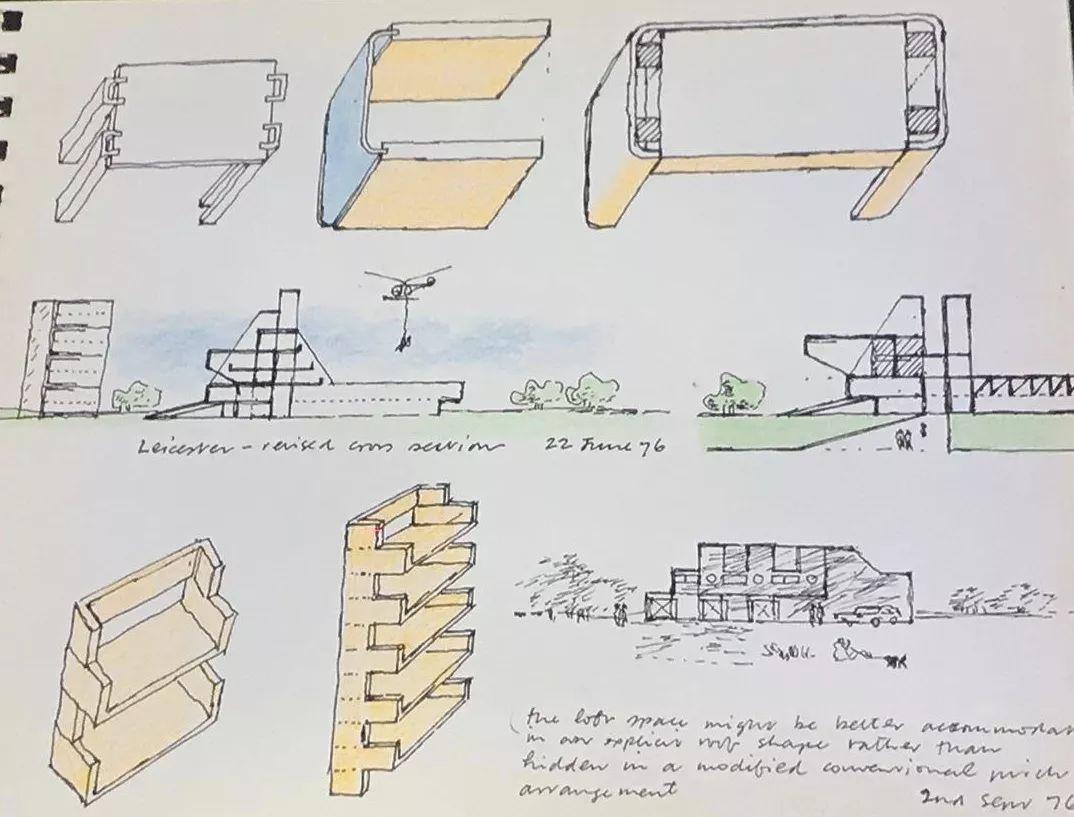 Leicester - revised cross section 22 June 76
the loft space might be better accommodat
in an explicit roof shape rather than
hidden in a modified conventional pitch
arrangement
2nd Sept 76